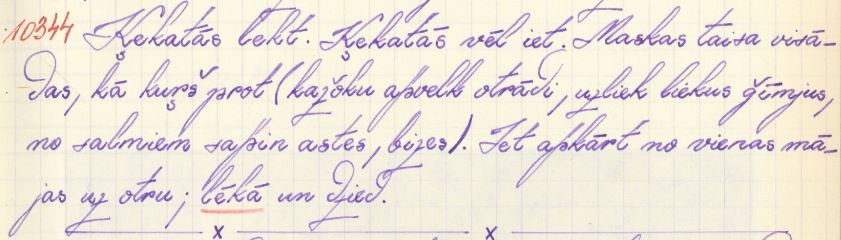 10344 Ķekatās lēkt. Ķekatās vēl iet. Maskas taisa visā-
das, kā kuŗš prot (kažoku apvelk otrādi, uzliek liekus ģīmjus,
no salmiem sapin astes, bizes). Iet apkārt no vienas mā-
jas uz otru; lēkā un dzied.
x x